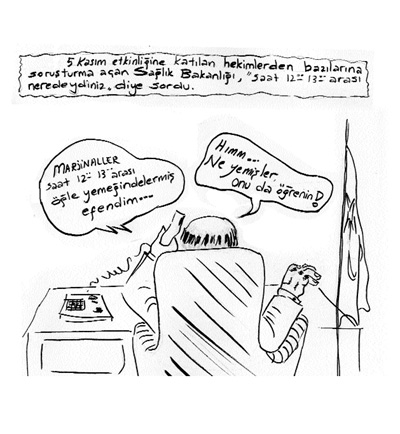 5 Kasım etkinliğine katılan hekimlerden bazılarına
soruşturma açan Sağlık Bakanlığı, "saat 12⁰⁰ 13⁰⁰ arası
neredeydiniz. diye sordu.
MARJİNALLER
saat 12⁰⁰ 13⁰⁰ arası
öğle yemeğindelermiş
efendim...
Hımm...
Ne yemişler
onu da öğrenin!